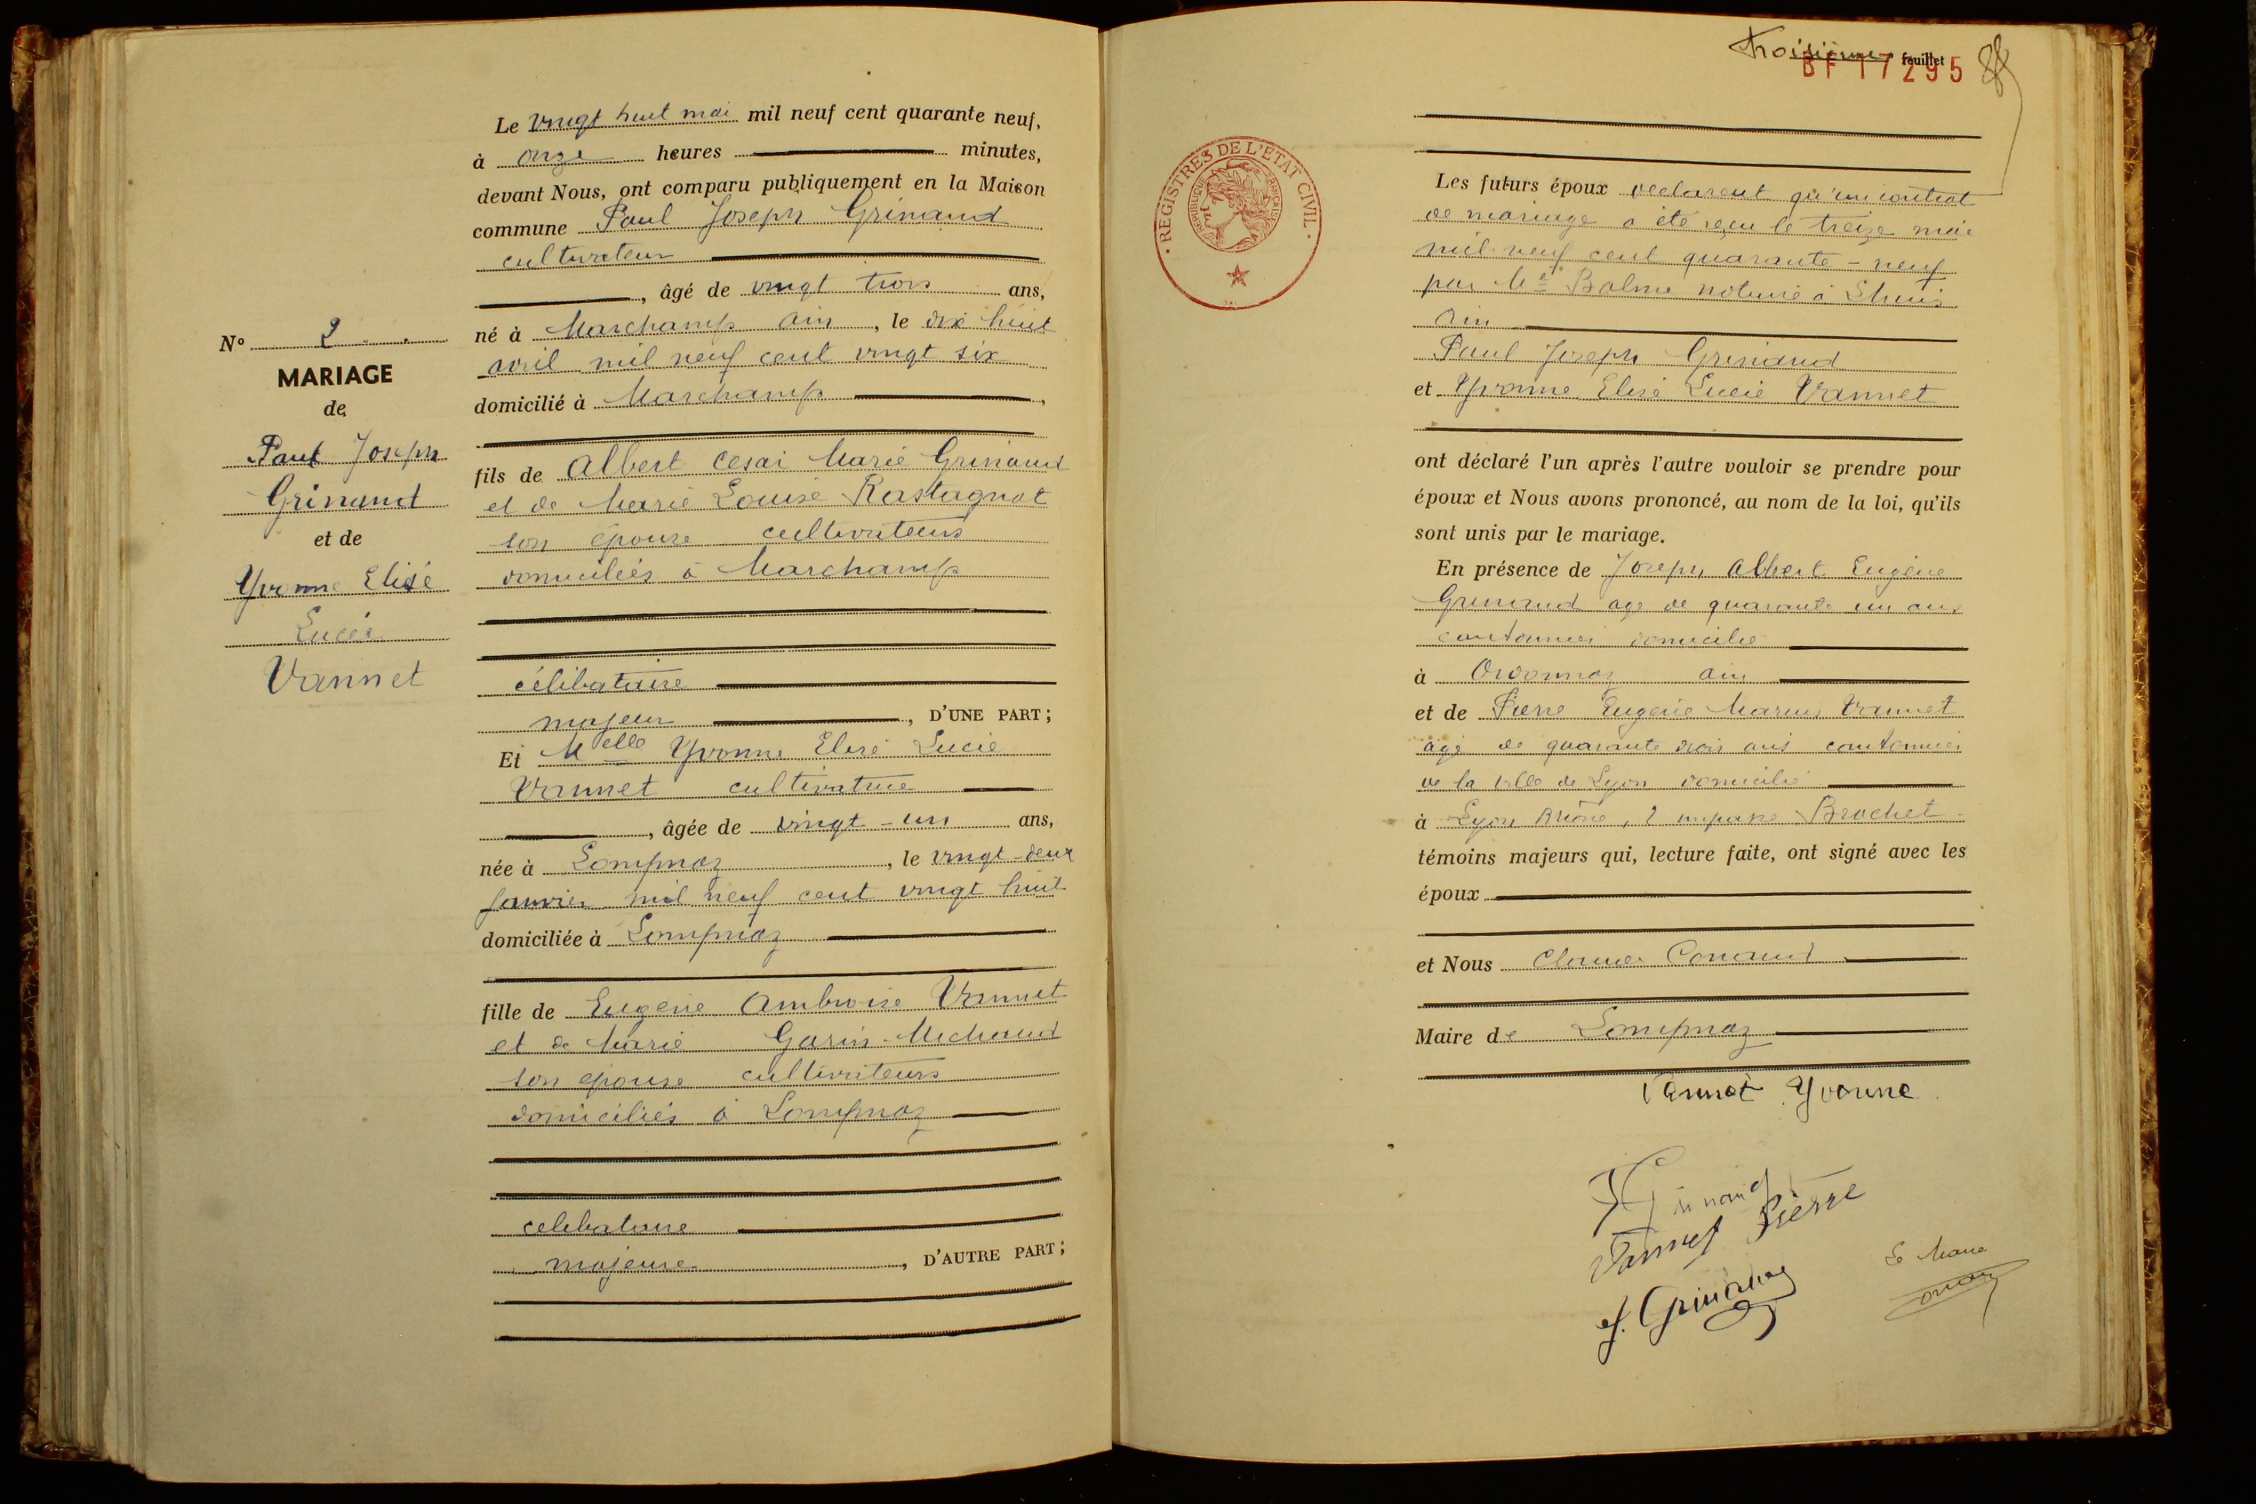 N° 2
MARIAGE
de
Paul Joseph
Grinand
et de
Yvonne Elisé
Lucie
Vannet
Le vingt huit mai mil neuf cent quarante neuf,
à onze heures minutes,
devant Nous, ont comparu publiquement en la Maison
commune Paul Joseph Grinand
cultivateur
, âgé de vingt trois ans,
né à Marchamp ain, le dix huit
avril mil neuf cent vingt six
domicilié à Marchamp
fils de Albert Cesar Marie Grinand
et de Marie Louise Rastagnot
son épouse cultivateurs
domiciliés à Marchamp
célibataire
majeur, D'UNE PART;
Et Melle Yvonne Elisé Lucie
Vannet cultivatrice
, âgée de vingt-un ans,
née à Lompnaz, le vingt-deux
janvier mil neuf cent vingt huit
domiciliée à Lompnaz
fille de Eugène Ambroise Vannet
et de Marie Garin-Michaud
son épouse cultivateurs
domiciliés à Lompnaz
celibataire
majeure, D'AUTRE PART;
troisième feuillet
BF 17295
REGISTRES DE L'ETAT CIVIL
REPUBLIQUE FRANÇAISE
Les futurs époux declarent qu'un contrat
de mariage a été reçu le treize mai
mil neuf cent quarante-neuf
par Me Balme notaire à Lhuis
Ain
Paul Joseph Grinand
et Yvonne Elisé Lucie Vannet
ont déclaré l'un après l'autre vouloir se prendre pour
époux et Nous avons prononcé, au nom de la loi, qu'ils
sont unis par le mariage.
En présence de Joseph Albert Eugène
Grinand agé de quarante un ans
cantonnier domicilié
à Ordonnaz ain
et de Pierre Eugène Marius Vannet
agé de quarante trois ans cantonnier
de la ville de Lyon domicilié
à Lyon Rhône, 2 impasse Brochet
témoins majeurs qui, lecture faite, ont signé avec les
époux
et Nous Conand
Maire de Lompnaz
Vannet Yvonne
Grinand
Vannet Pierre
Le Maire
J. Grinand
Conand